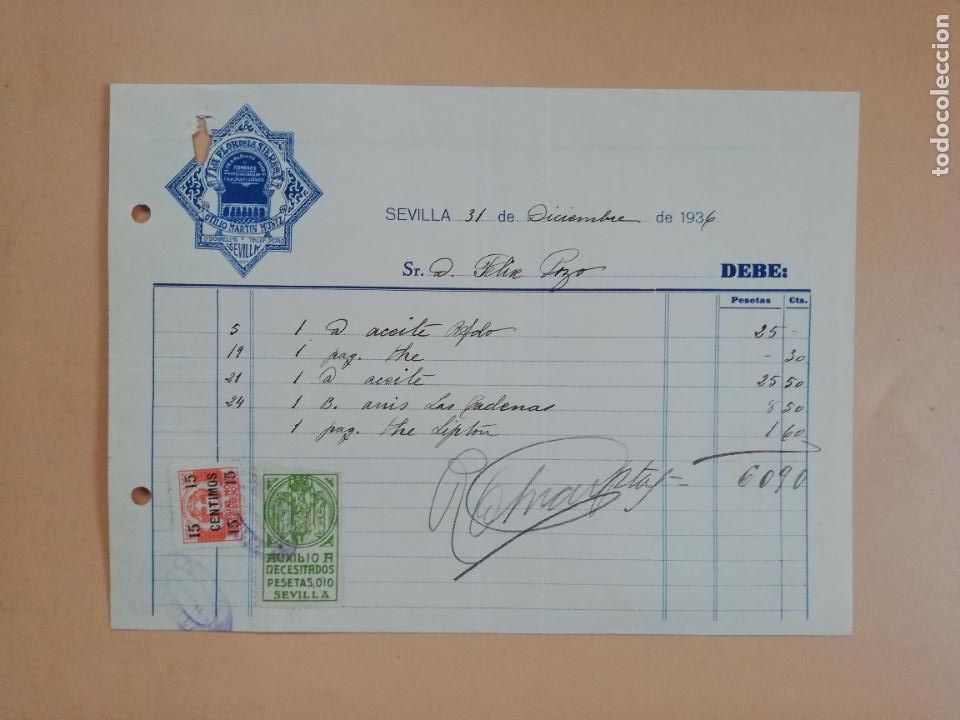 LA FLOR DE LA SIERRA
OTILIO MARTIN MUÑIZ
SEVILLA
SEVILLA 31 de Diciembre de 1936
Sr. D. Felix Pozo DEBE:
Pesetas Cts.
5 1 @ aceite Rfdo 25 -
19 1 paq. the - 30
21 1 @ aceite 25 50
24 1 B. anis Las Cadenas 8 50
1 paq. the Lipton 1 60
Ptas 60 90
15 15
CENTIMOS
15 15
AUXILIO A
NECESITADOS
PESETAS, 0'10
SEVILLA
todocoleccion